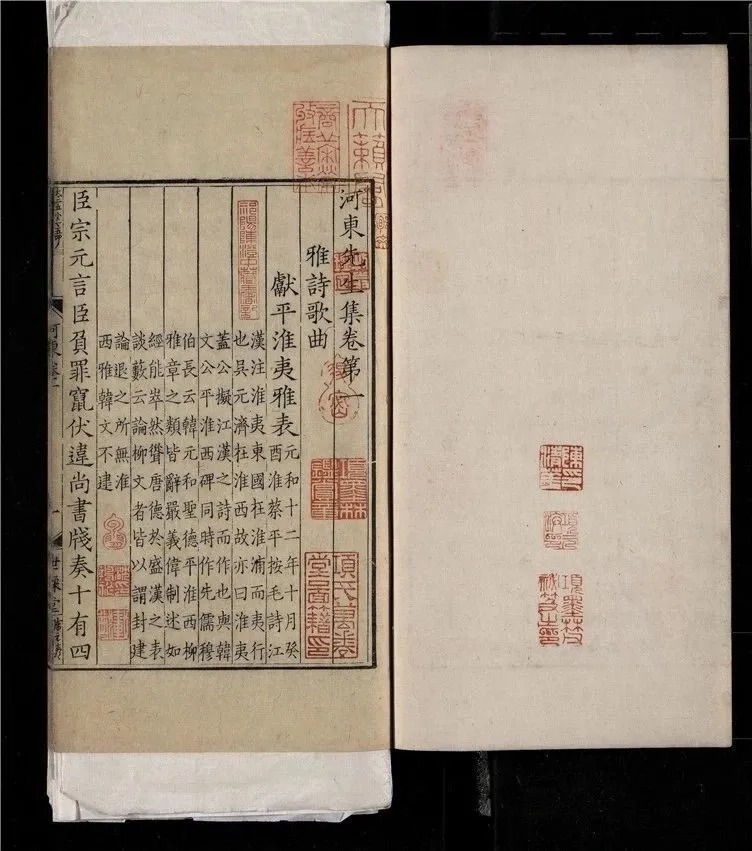 河東先生集卷第一
雅詩歌曲
獻平淮夷雅表
元和十二年十月癸
酉淮蔡平按毛詩江
漢注淮夷東國在淮浦而夷行
也吳元濟在淮西故亦曰淮夷
蓋公擬江漢之詩而作也與韓
文公平淮西碑同時作先儒穆
伯長云韓元和聖德平淮西柳
雅章之類皆辭嚴義偉制述如
經能崒然聳唐德於盛漢之表
談藪云論柳文者皆以謂封建
論退之所無淮
西雅韓文不逮
臣宗元言臣負罪竄伏違尚書牋奏十有四
河東卷一
一
世綵堂
天籟閣
項氏萬卷堂圖籍印
祁陽陳澄中藏書記